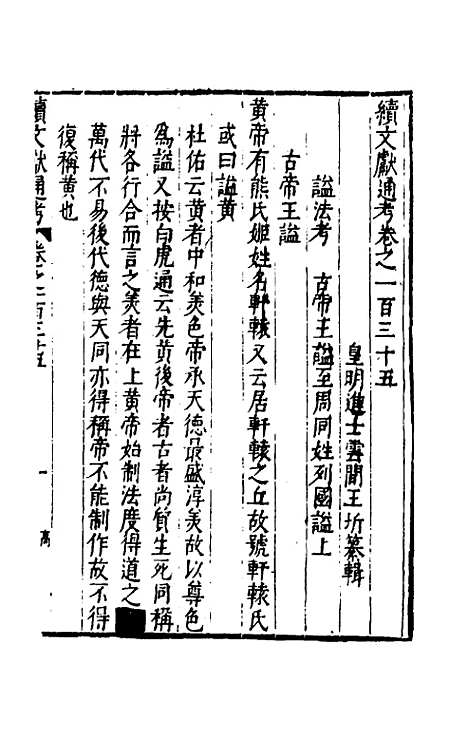 續文獻通考卷之一百三十五
皇明進士雲間王圻纂輯
諡法考　古帝王諡至周同姓列國諡上
古帝王諡
黄帝有熊氏姬姓名軒轅又云居軒轅之丘故號軒轅氏
或曰諡黄
杜佑云黄者中和美色帝承天德最盛淳美故以尊色
爲諡又按白虎通云先黄後帝者古者尚質生死同稱
將各行合而言之美者在上黄帝始制法度得道之
萬代不易後代德與天同亦得稱帝不能制作故不得
復稱黄也
續文獻通考　卷之一百三十五　一